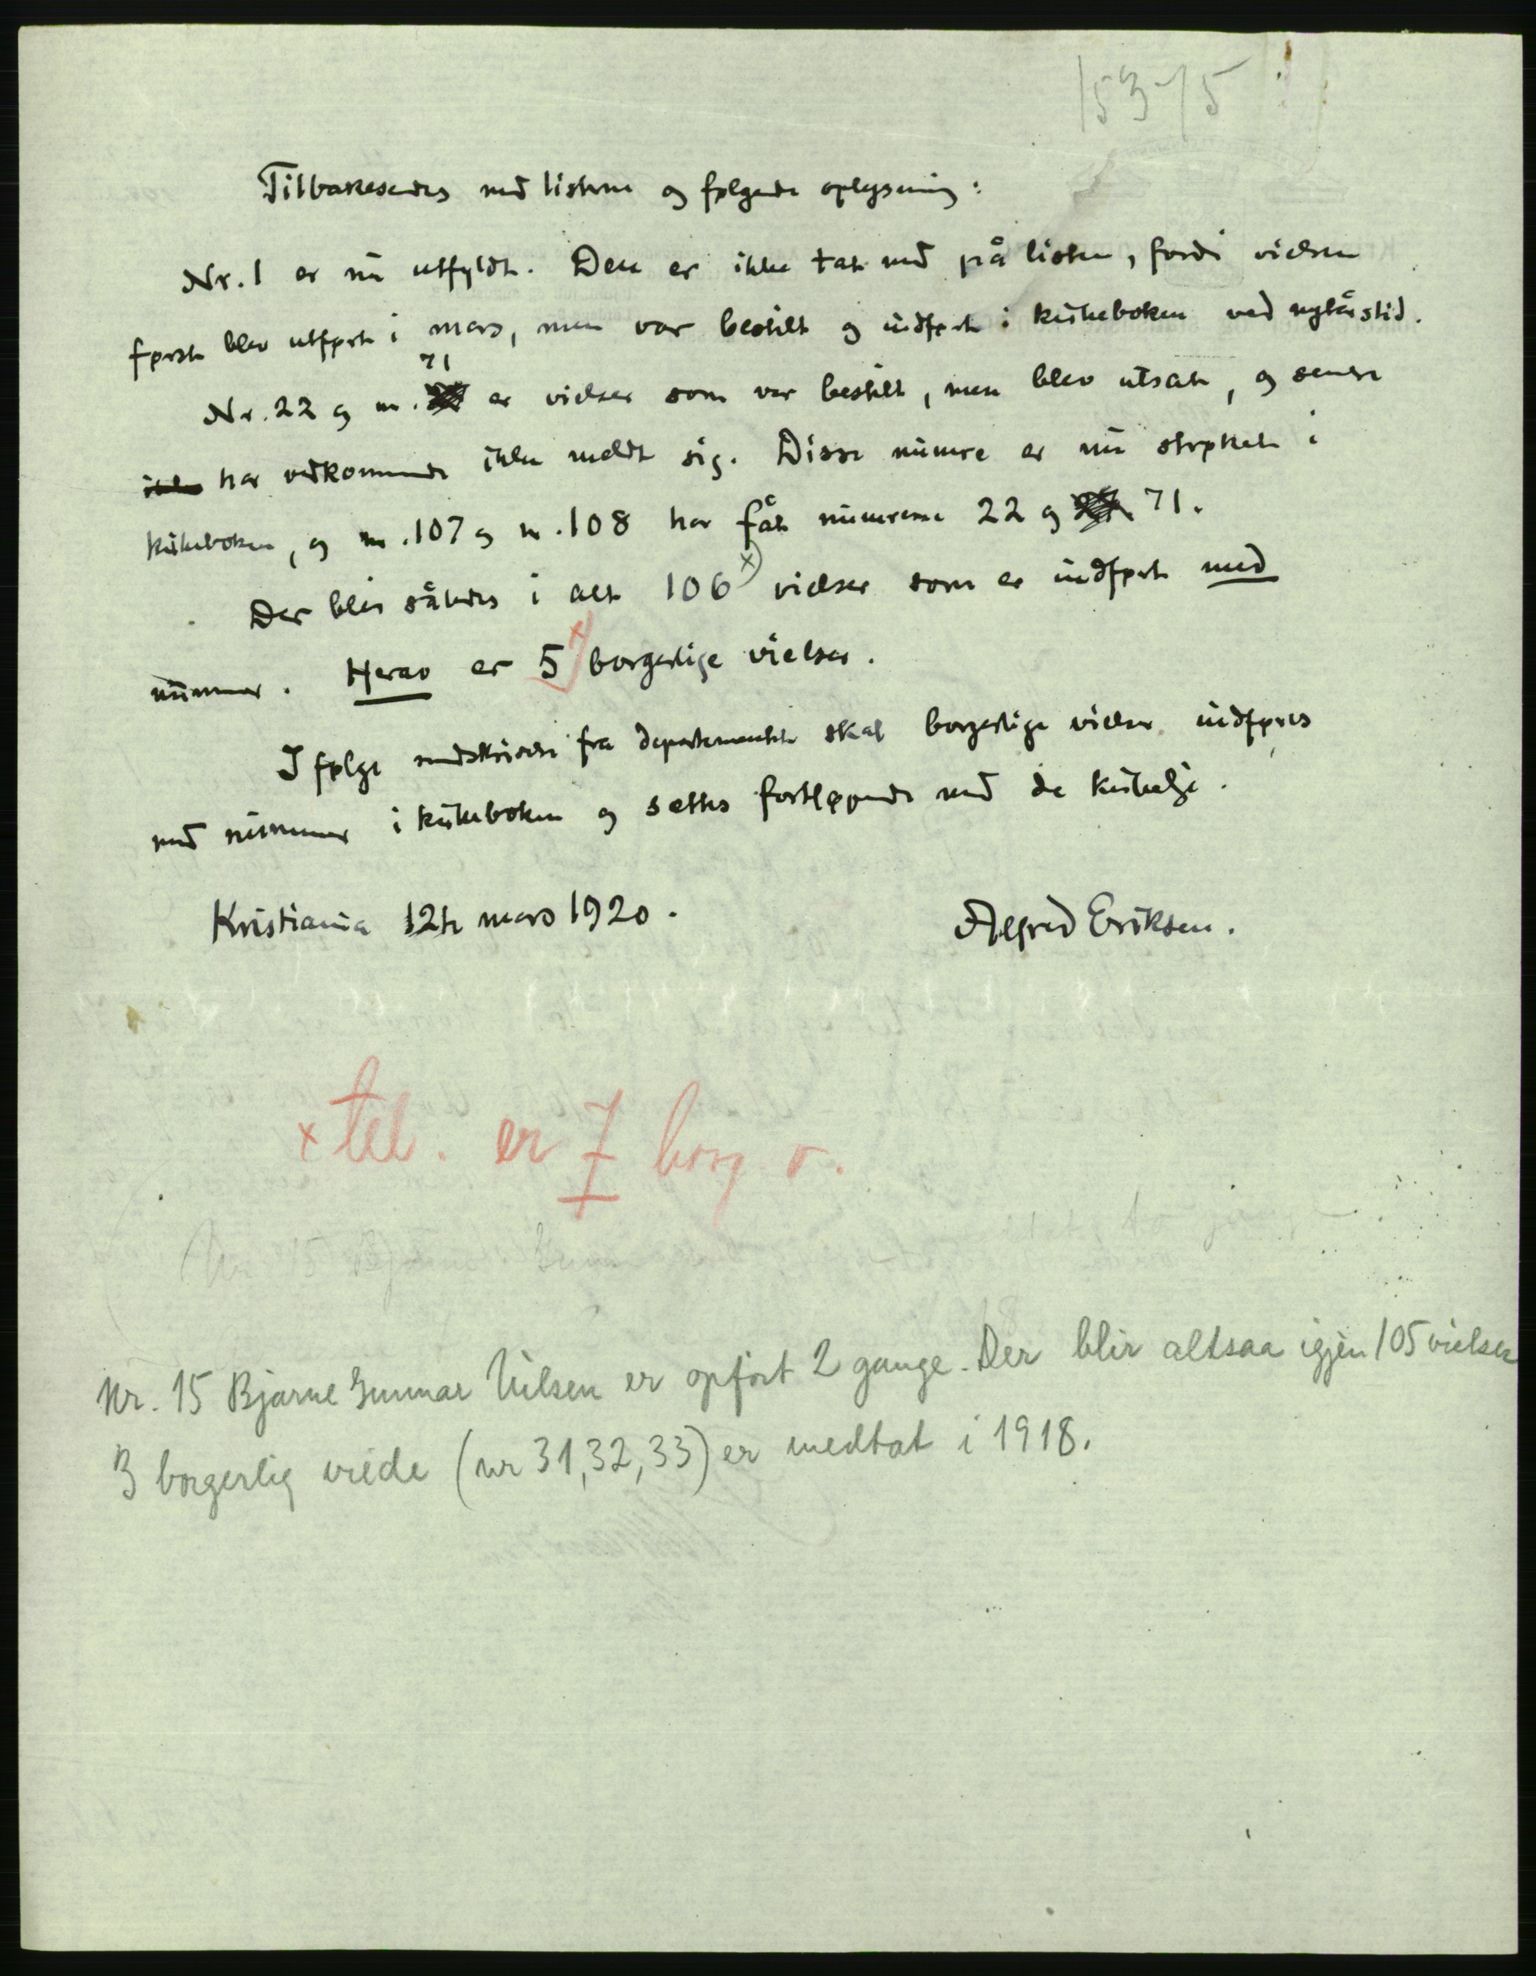 153-15
Tilbakesendes med listerne og følgende oplysning:
Nr. 1 er nu utfyldt. Den er ikke tat med på listen, fordi vielsen
først blev utført i mars, men var bestilt og indført i kirkeboken ved nytårstid.
71
Nr. 22 og nr. er vielser som var bestilt, men blev utsat, og senere
ikke har vedkommende ikke meldt sig. Disse numre er nu strøket i
kirkeboken, og nr. 107 og nr. 108 har fåt numrene 22 og 71.
Der blir således i alt 106 x) vielser som er indført med
nummer. Herav er 5 x) borgerlige vielser.
I følge rundskrivelse fra departementet skal borgerlige vielser indføres
med nummer i kirkeboken og sættes fortløpende med de kirkelige.
Kristiania 12te mars 1920. Alfred Eriksen.
x tel. er 7 borg v.
Nr. 15 Bjarne Gunnar Nilsen er opført 2 gange. Der blir altsaa igjen 105 vielser
3 borgerlig viede (nr 31, 32, 33) er medtat i 1918.